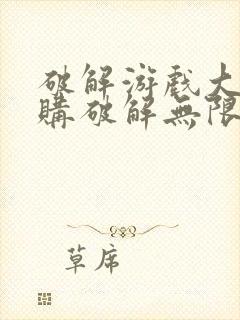 破解游戲大
購破解無限
草席